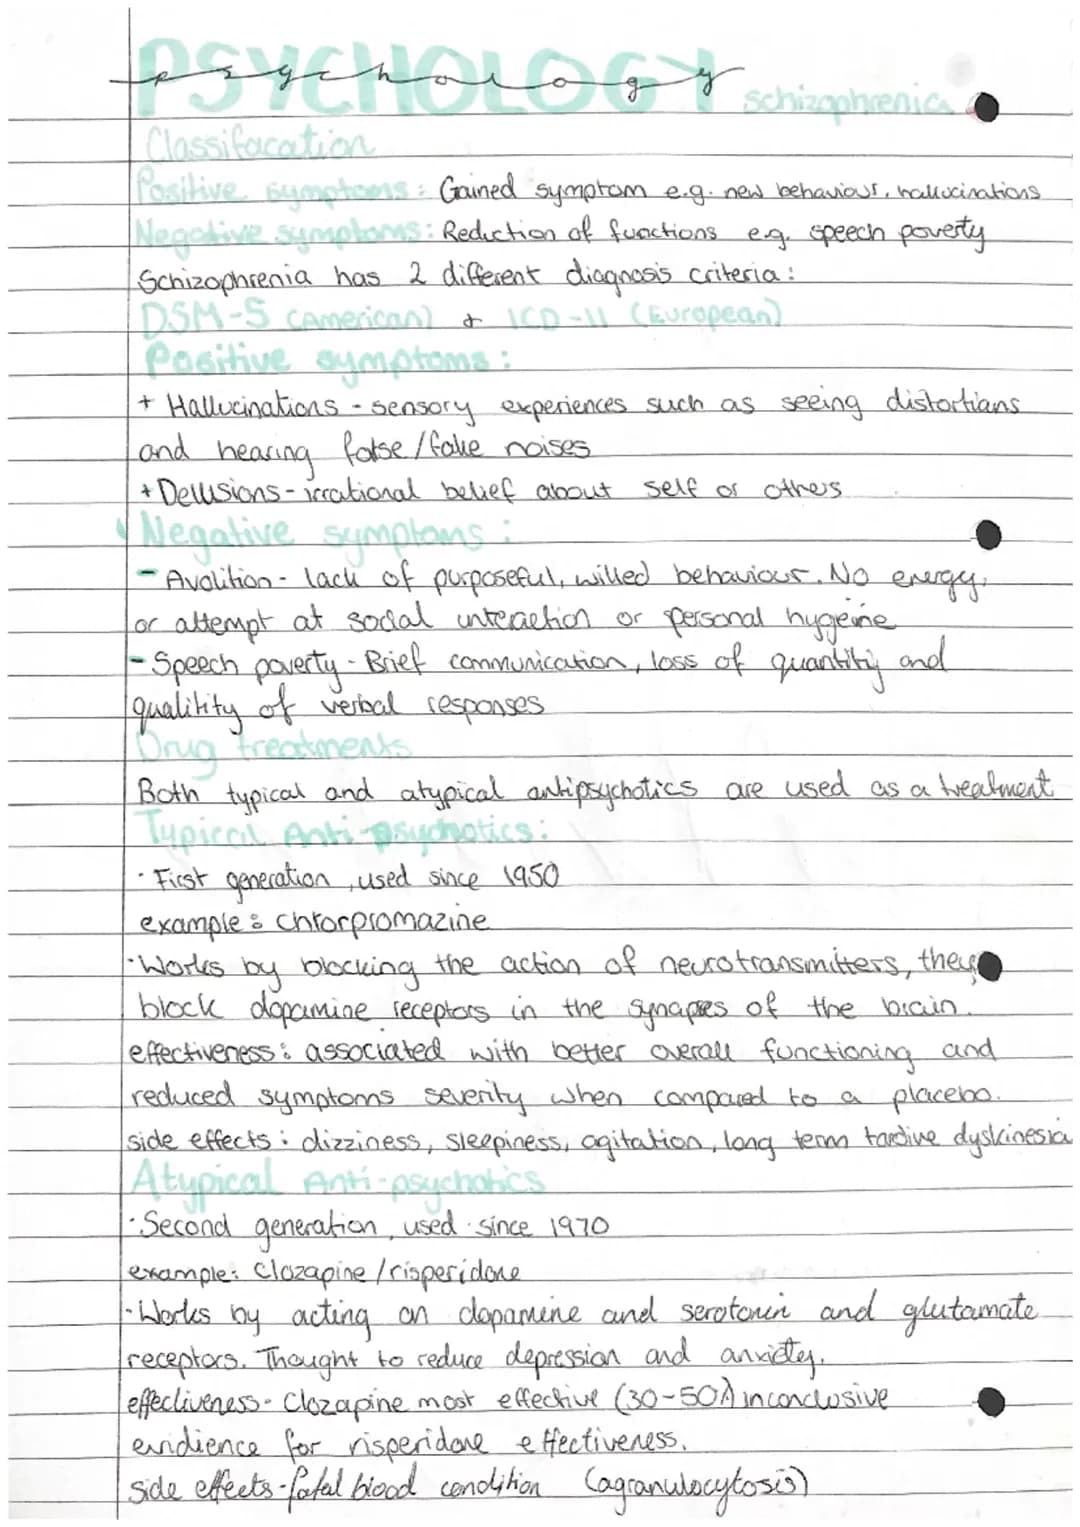 PSYCHOLOGY
psychology
schizophrenia
Classifacation
Positive symptoms: Gained symptom e.g. new behaviour, hallucinations
Negative symptoms: Reduction of functions e.g. speech poverty
Schizophrenia has 2 different diagnosis criteria:
DSM-5 (American) + ICD-11 (European)
Positive symptoms:
+ Hallucinations - sensory experiences such as seeing distortians
and hearing false/fake noises
+ Delusions - irrational belief about self or others
Negative symptoms:
- Avolition - lack of purposeful, willed behaviour. No energy,
or attempt at social interaction or personal hygeine
- Speech poverty - Brief communication, loss of quantitiy and
qualitity of verbal responses
Drug treatments
Both typical and atypical antipsychotics are used as a treatment
Typical Anti-psychotics:
· First generation, used since 1950
example: Chlorpromazine
· Works by blocking the action of neurotransmitters, they
block dopamine receptors in the synapses of the brain.
effectiveness: associated with better overall functioning and
reduced symptoms severity when compared to a placebo.
side effects: dizziness, sleepiness, agitation, long term tardive dyskinesia
Atypical Anti-psychotics
· Second generation, used since 1970
example: Clozapine/risperidone
· Works by acting on dopamine and serotonin and glutamate
receptors. Thought to reduce depression and anxiety.
effectiveness - Clozapine most effective (30-50%) inconclusive
evidience for risperidone effectiveness.
side effects - fatal blood condition (agranulocytosis)